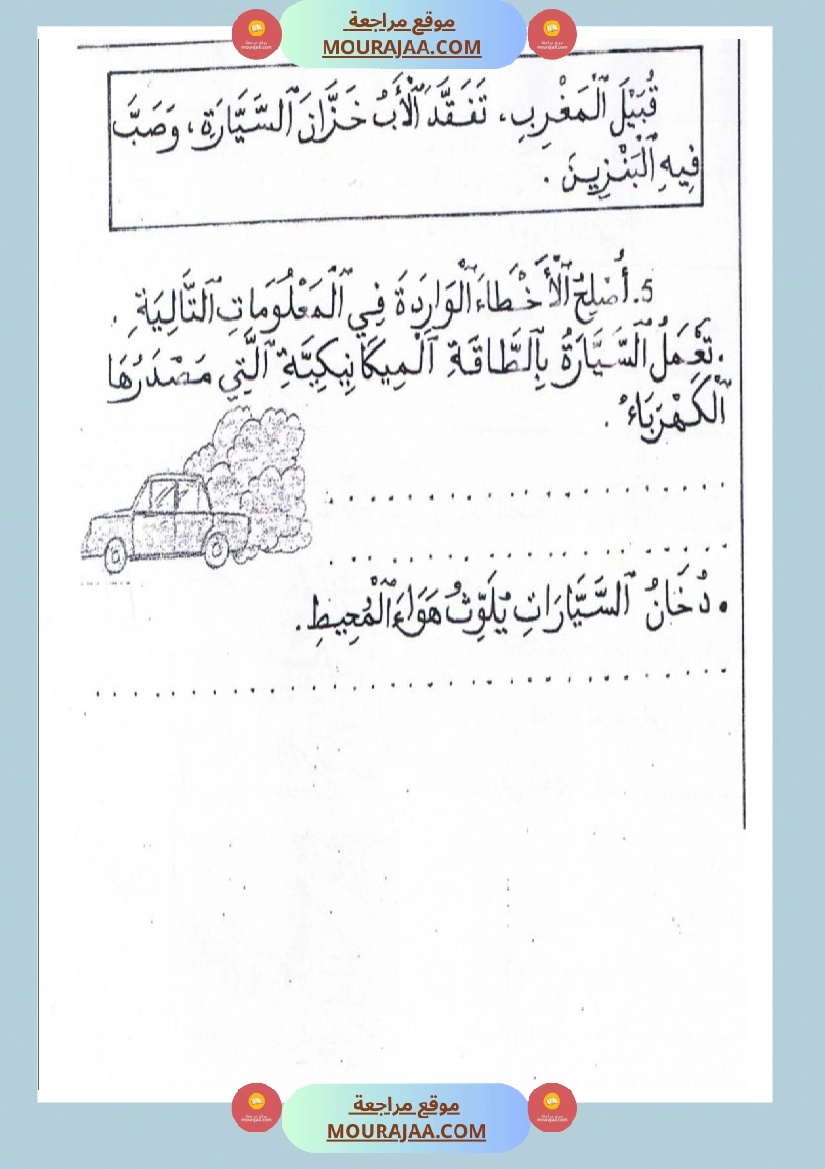 موقع مراجعة
MOURAJAA.COM
قُبَيْلَ ٱلْمَغْرِبِ، تَفَقَّدَ ٱلْأَبُ خَزَّانَ ٱلسَّيَّارَةِ، وَصَبَّ
فِيهِ ٱلْبَنْزِينَ .
5. أُصْلِحُ ٱلْأَخْطَاءَ ٱلْوَارِدَةَ فِي ٱلْمَعْلُومَاتِ ٱلتَّالِيَةِ .
. تَعْمَلُ ٱلسَّيَّارَةُ بِٱلطَّاقَةِ ٱلْمِيكَانِيكِيَّةِ ٱلَّتِي مَصْدَرُهَا
ٱلْكَهْرَبَاءُ .
• دُخَانُ ٱلسَّيَّارَاتِ يُلَوِّثُ هَوَاءَ ٱلْمُحِيطِ .
موقع مراجعة
MOURAJAA.COM